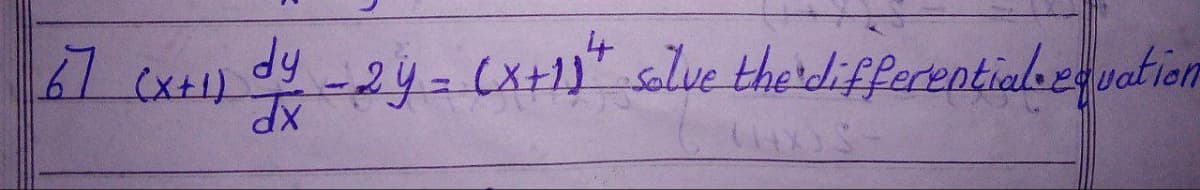 67 (x+1) dy/dx - 2y = (x+1)⁴ solve the differential equation